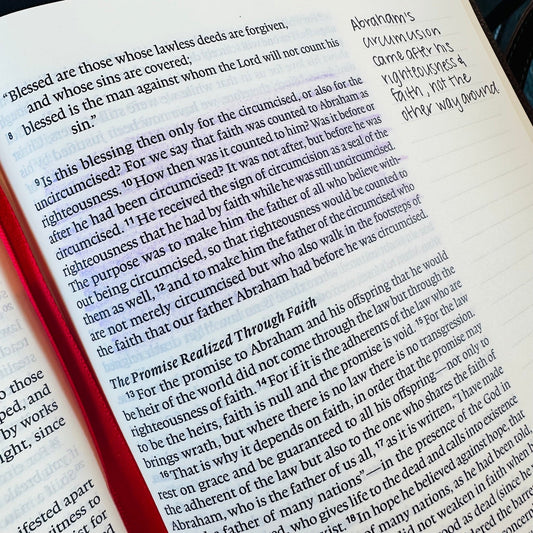 "Blessed are those whose lawless deeds are forgiven,
and whose sins are covered;
8 blessed is the man against whom the Lord will not count his
sin."
9 Is this blessing then only for the circumcised, or also for the
uncircumcised? For we say that faith was counted to Abraham as
righteousness. 10 How then was it counted to him? Was it before or
after he had been circumcised? It was not after, but before he was
circumcised. 11 He received the sign of circumcision as a seal of the
righteousness that he had by faith while he was still uncircumcised.
The purpose was to make him the father of all who believe with-
out being circumcised, so that righteousness would be counted to
them as well, 12 and to make him the father of the circumcised who
are not merely circumcised but who also walk in the footsteps of
the faith that our father Abraham had before he was circumcised.
The Promise Realized Through Faith
13 For the promise to Abraham and his offspring that he would
be heir of the world did not come through the law but through the
righteousness of faith. 14 For if it is the adherents of the law who are
to be the heirs, faith is null and the promise is void. 15 For the law
brings wrath, but where there is no law there is no transgression.
16 That is why it depends on faith, in order that the promise may
rest on grace and be guaranteed to all his offspring—not only to
the adherent of the law but also to the one who shares the faith of
Abraham, who is the father of us all, 17 as it is written, "I have made
a father of many nations"—in the presence of the God in
who gives life to the dead and calls into existence
18 In hope he believed against hope, that
of many nations, as he had been told,
did not weaken in faith when
good as dead (since he
Abraham's
circumcision
came after his
righteousness &
faith, not the
other way around
those
ped, and
by works
ight, since
ifested apart
witness to
st for